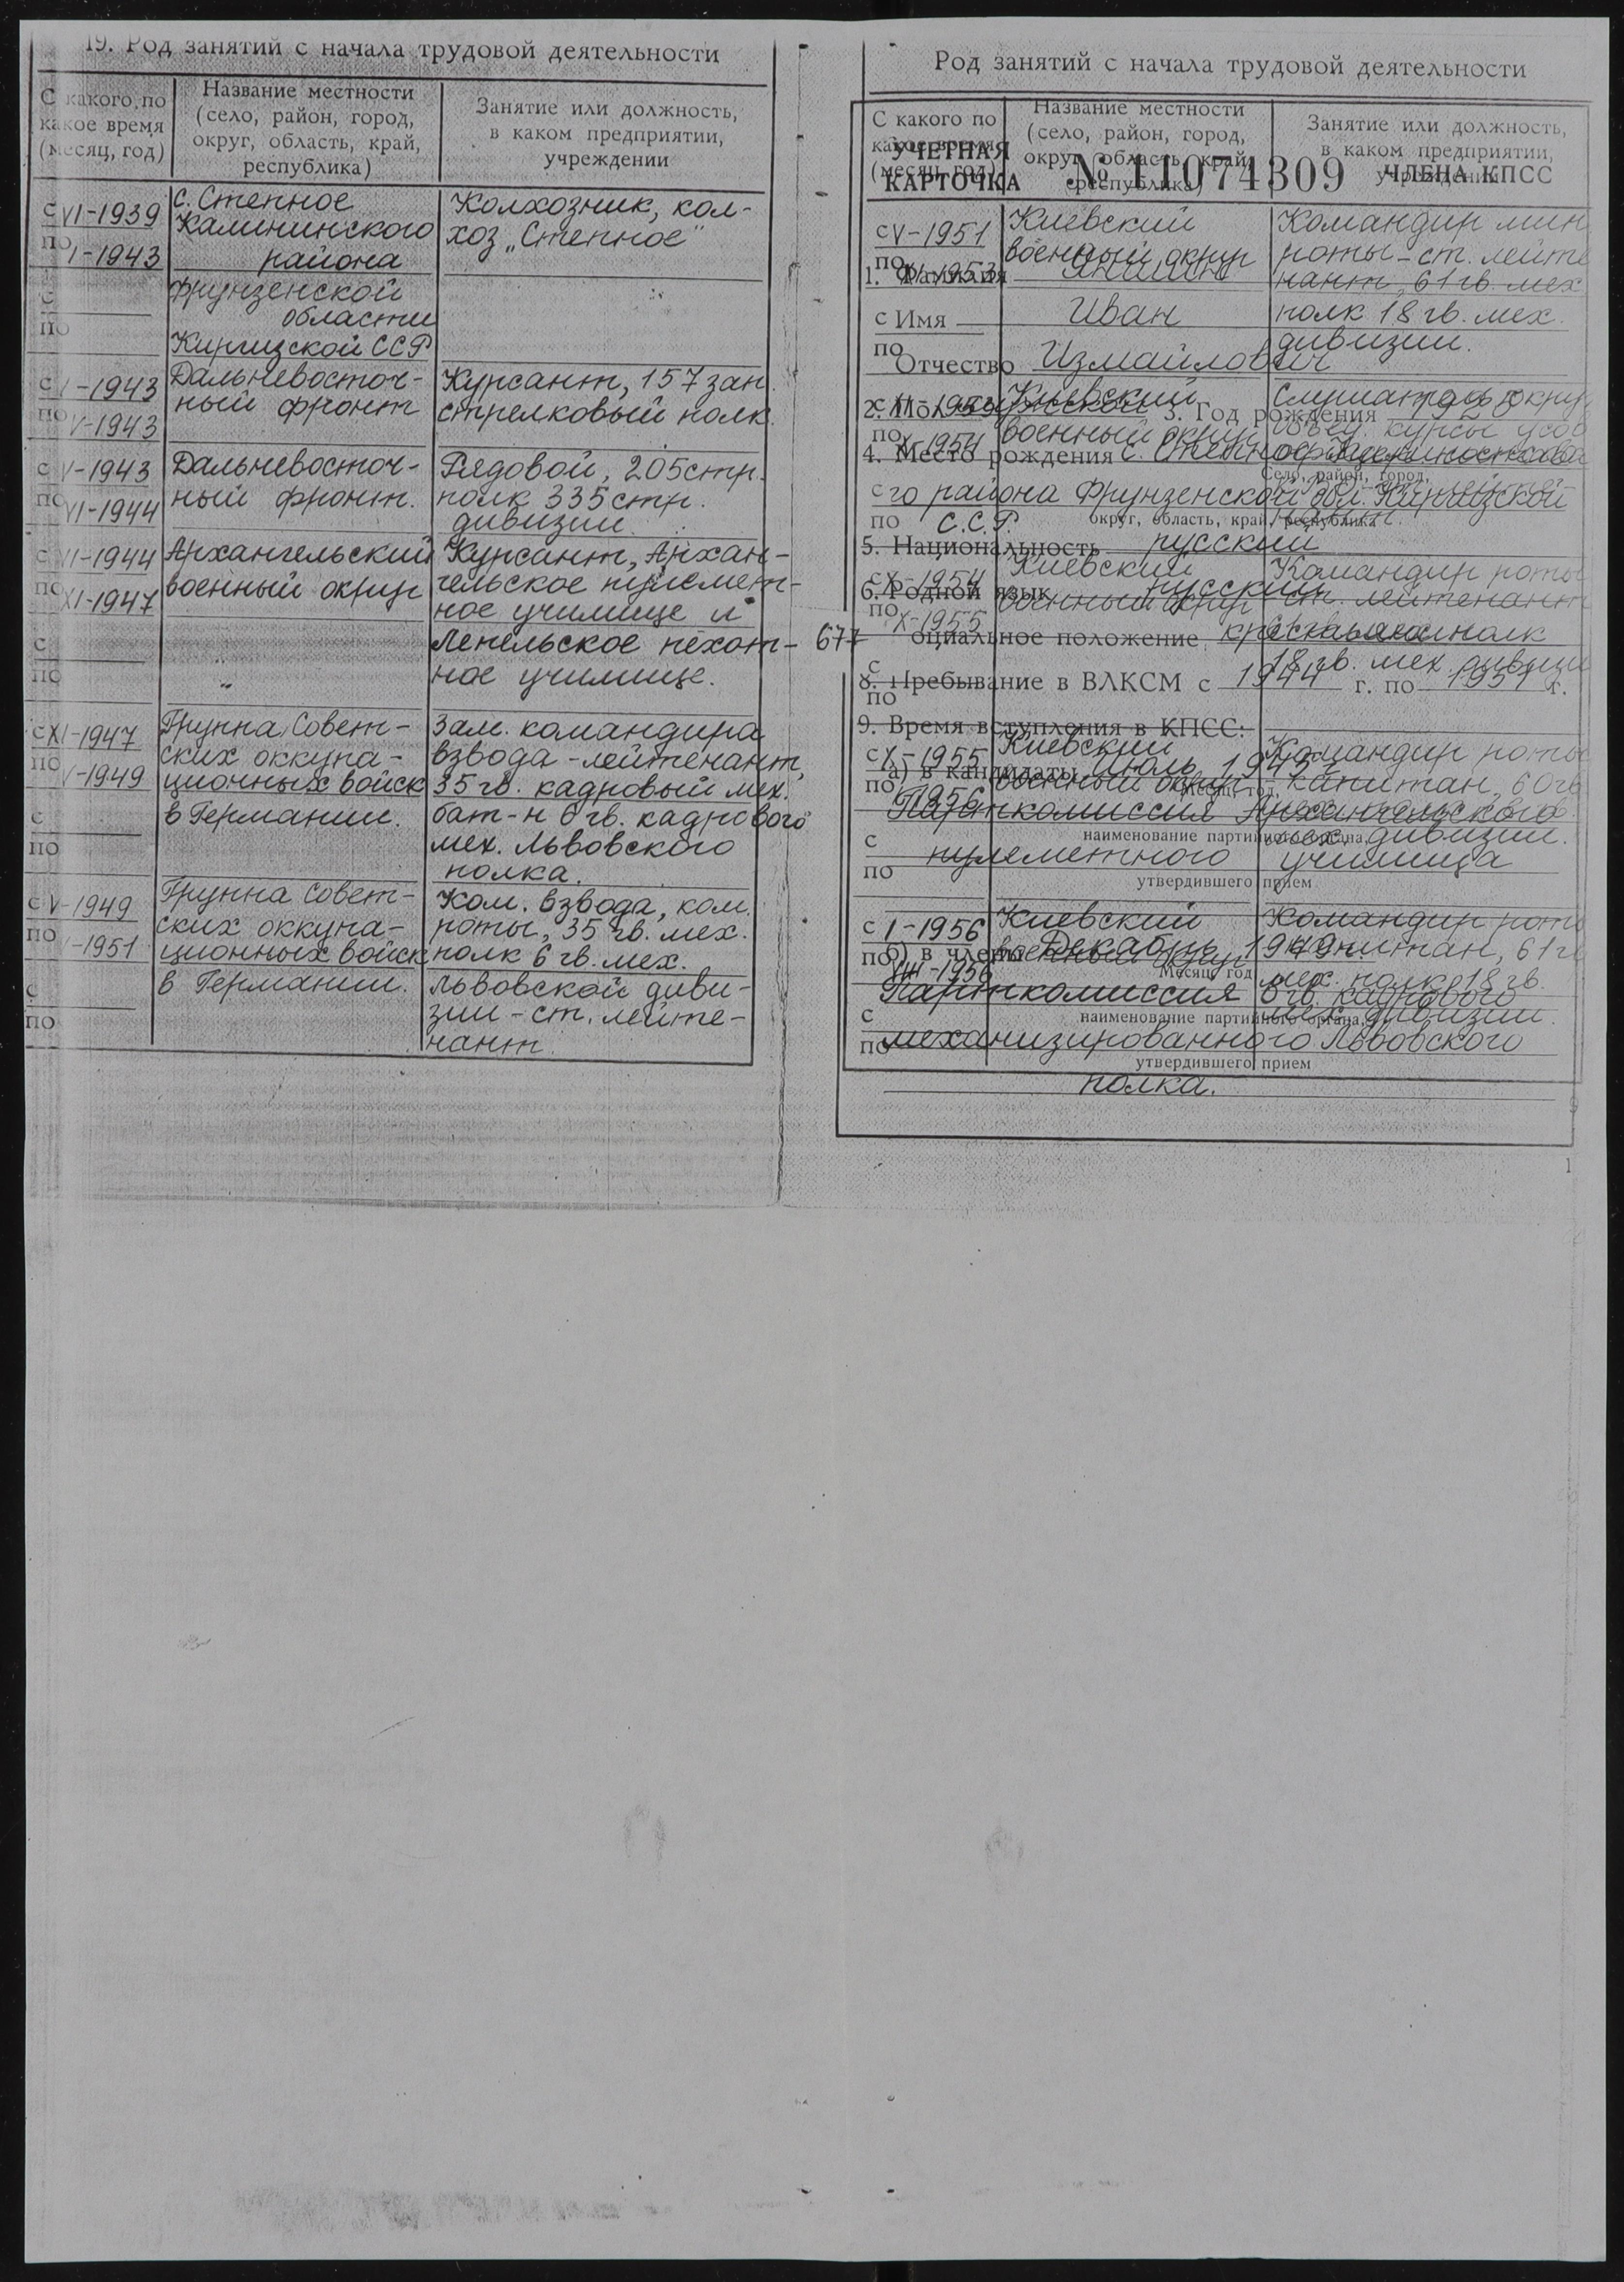 19. Род занятий с начала трудовой деятельности
С какого, по
какое время
(месяц, год)
Название местности
(село, район, город,
округ, область, край,
республика)
Занятие или должность,
в каком предприятии,
учреждении
с VI-1939
по I-1943
с. Степное
Калининского
района
Фрунзенской
области
Киргизской ССР
Колхозник, кол-
хоз „Степное"
с
по
с I-1943
по V-1943
Дальневосточ-
ный фронт
Курсант, 157 зап.
стрелковый полк.
с V-1943
по VI-1944
Дальневосточ-
ный фронт.
Рядовой, 205 стр.
полк 335 стр.
дивизии.
с VI-1944
по XI-1947
Архангельский
военный округ
Курсант, Архан-
гельское пулемет-
ное училище и
Лепельское пехот-
ное училище.
с
по
"
с XI-1947
по V-1949
Группа Совет-
ских оккупа-
ционных войск
в Германии.
Зам. командира
взвода - лейтенант,
35 гв. кадровый мех.
бат-н 6 гв. кадрового
мех. Львовского
полка.
с
по
с V-1949
по V-1951
Группа Совет-
ских оккупа-
ционных войск
в Германии.
Ком. взвода, ком.
роты, 35 гв. мех.
полк 6 гв. мех.
Львовской диви-
зии - ст. лейте-
нант.
с
по
Род занятий с начала трудовой деятельности
С какого по
какое время
(месяц, год)
Название местности
(село, район, город,
округ, область, край,
республика)
Занятие или должность,
в каком предприятии,
учреждении
УЧЕТНАЯ
КАРТОЧКА
№ 11074309
ЧЛЕНА КПСС
с V-1951
по XI-1953
Киевский
военный округ
Командир мин
роты - ст. лейте
нант, 61 гв. мех
полк 18 гв. мех.
дивизии.
1. Фамилия
Имя Иван
Отчество Измайлович
с
по
с XI-1953
по X-1954
Киевский
военный округ
2. Пол мужской 3. Год рождения
4. Место рождения с. Степное Калининско
Село, район, город,
го района Фрунзенской обл. Киргизской
округ, область, край, республика
С.С.Р.
с
по
5. Национальность русский
6. Родной язык русский
с X-1954
по X-1955
Киевский
военный округ
Командир роты
ст. лейтенант
полк
18 гв. мех. дивизи
677
оциальное положение
8. Пребывание в ВЛКСМ с 1944 г. по 1951 г.
с
по
9. Время вступления в КПСС:
с X-1955
по I-1956
Киевский
военный округ
Командир роты
капитан, 60 гв
дивизии.
а) в кандидаты Июль
месяц, год,
Парткомиссия Архангельского
наименование партийного органа,
пулеметного училища
утвердившего прием
с
по
с I-1956
по VIII-1956
Киевский
военный округ
Командир рот
капитан, 61 г
мех. полк 18 гв.
мех. дивизии.
б) в члены Декабрь 1949 г.
Месяц, год
Парткомиссия 6 гв. кадрового
наименование партийного органа,
механизированного Львовского
утвердившего прием
полка.
с
по
1